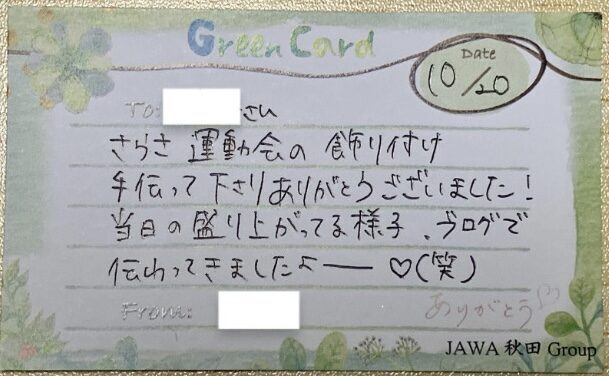 Green Card
Date
10/20
To: さん
さらさ 運動会の 飾り付け
手伝って下さりありがとうございました!
当日の盛り上がってる様子、ブログで
伝わってきましたよー ♡(笑)
From:
ありがとう
JAWA 秋田 Group